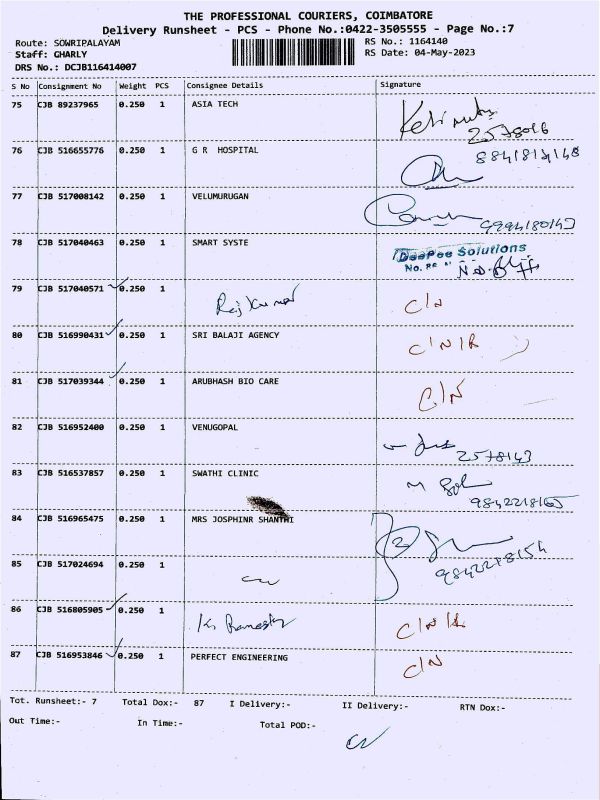 THE PROFESSIONAL COURIERS, COIMBATORE
Delivery Runsheet - PCS - Phone No.:0422-3505555 - Page No.:7
Route: SOWRIPALAYAM RS No.: 1164140
Staff: GHARLY RS Date: 04-May-2023
DRS No.: DCJB116414007
S No Consignment No Weight PCS Consignee Details Signature
75 CJB 89237965 0.250 1 ASIA TECH
2578016
76 CJB 516655776 0.250 1 G R HOSPITAL
77 CJB 517008142 0.250 1 VELUMURUGAN
9994180143
78 CJB 517040463 0.250 1 SMART SYSTE DeePee Solutions
No.
79 CJB 517040571 0.250 1 Rajkumar C/N
80 CJB 516990431 0.250 1 SRI BALAJI AGENCY C/N/R
81 CJB 517039344 0.250 1 ARUBHASH BIO CARE C/N
82 CJB 516952400 0.250 1 VENUGOPAL
2578143
83 CJB 516537857 0.250 1 SWATHI CLINIC
9842218165
84 CJB 516965475 0.250 1 MRS JOSPHINR SHANTHI
9842218154
85 CJB 517024694 0.250 1
86 CJB 516805905 0.250 1 K. Ramesh C/N/R
87 CJB 516953846 0.250 1 PERFECT ENGINEERING C/N
Tot. Runsheet:- 7 Total Dox:- 87 I Delivery:- II Delivery:- RTN Dox:-
Out Time:- In Time:- Total POD:-